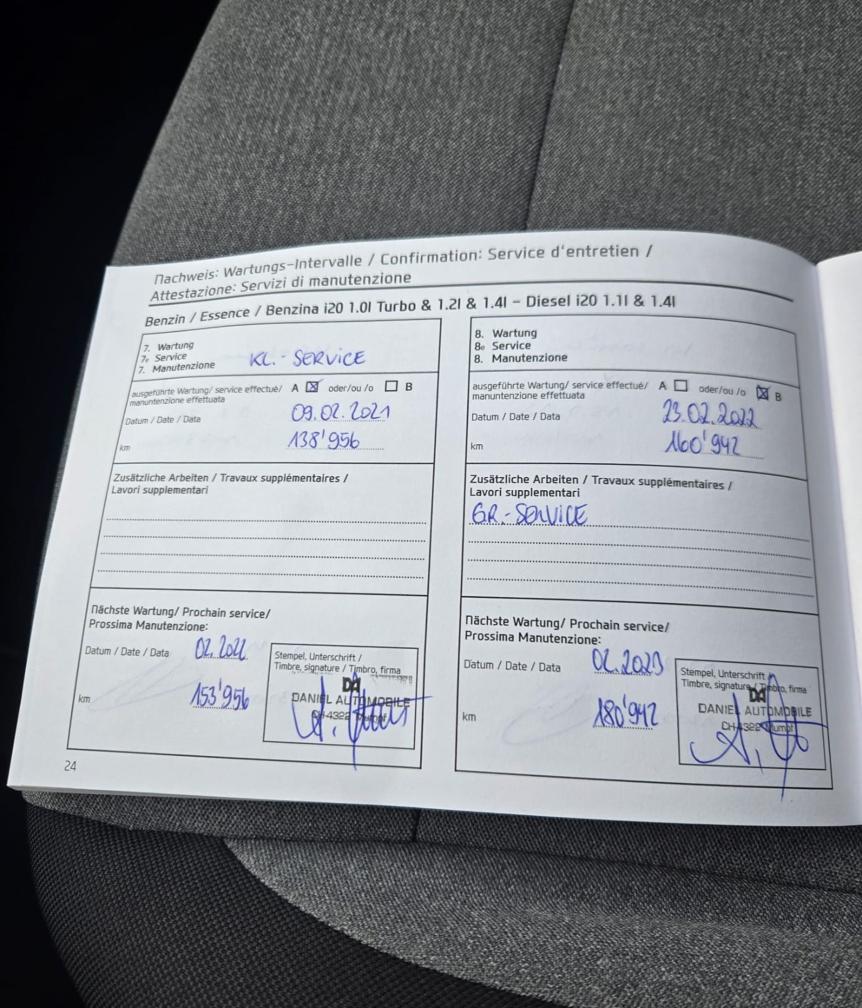 Nachweis: Wartungs-Intervalle / Confirmation: Service d'entretien /
Attestazione: Servizi di manutenzione
Benzin / Essence / Benzina i20 1.0l Turbo & 1.2l & 1.4l – Diesel i20 1.1l & 1.4l
7. Wartung
7e Service
7. Manutenzione
KL.-SERVICE
ausgeführte Wartung/ service effectué/ A ☒ oder/ou /o ☐ B
manuntenzione effettuata
Datum / Date / Data 09.02.2021
km 138'956
Zusätzliche Arbeiten / Travaux supplémentaires /
Lavori supplementari
Nächste Wartung/ Prochain service/
Prossima Manutenzione:
Datum / Date / Data 02.2022
km 153'956
Stempel, Unterschrift /
Timbre, signature / Timbro, firma
DA
DANIEL AUTOMOBILE
CH-4322 Mumpf
24
8. Wartung
8e Service
8. Manutenzione
ausgeführte Wartung/ service effectué/ A ☐ oder/ou /o ☒ B
manuntenzione effettuata
Datum / Date / Data 23.02.2022
km 160'942
Zusätzliche Arbeiten / Travaux supplémentaires /
Lavori supplementari
GR.-SERVICE
Nächste Wartung/ Prochain service/
Prossima Manutenzione:
Datum / Date / Data 02.2023
km 180'942
Stempel, Unterschrift /
Timbre, signature / Timbro, firma
DA
DANIEL AUTOMOBILE
CH-4322 Mumpf